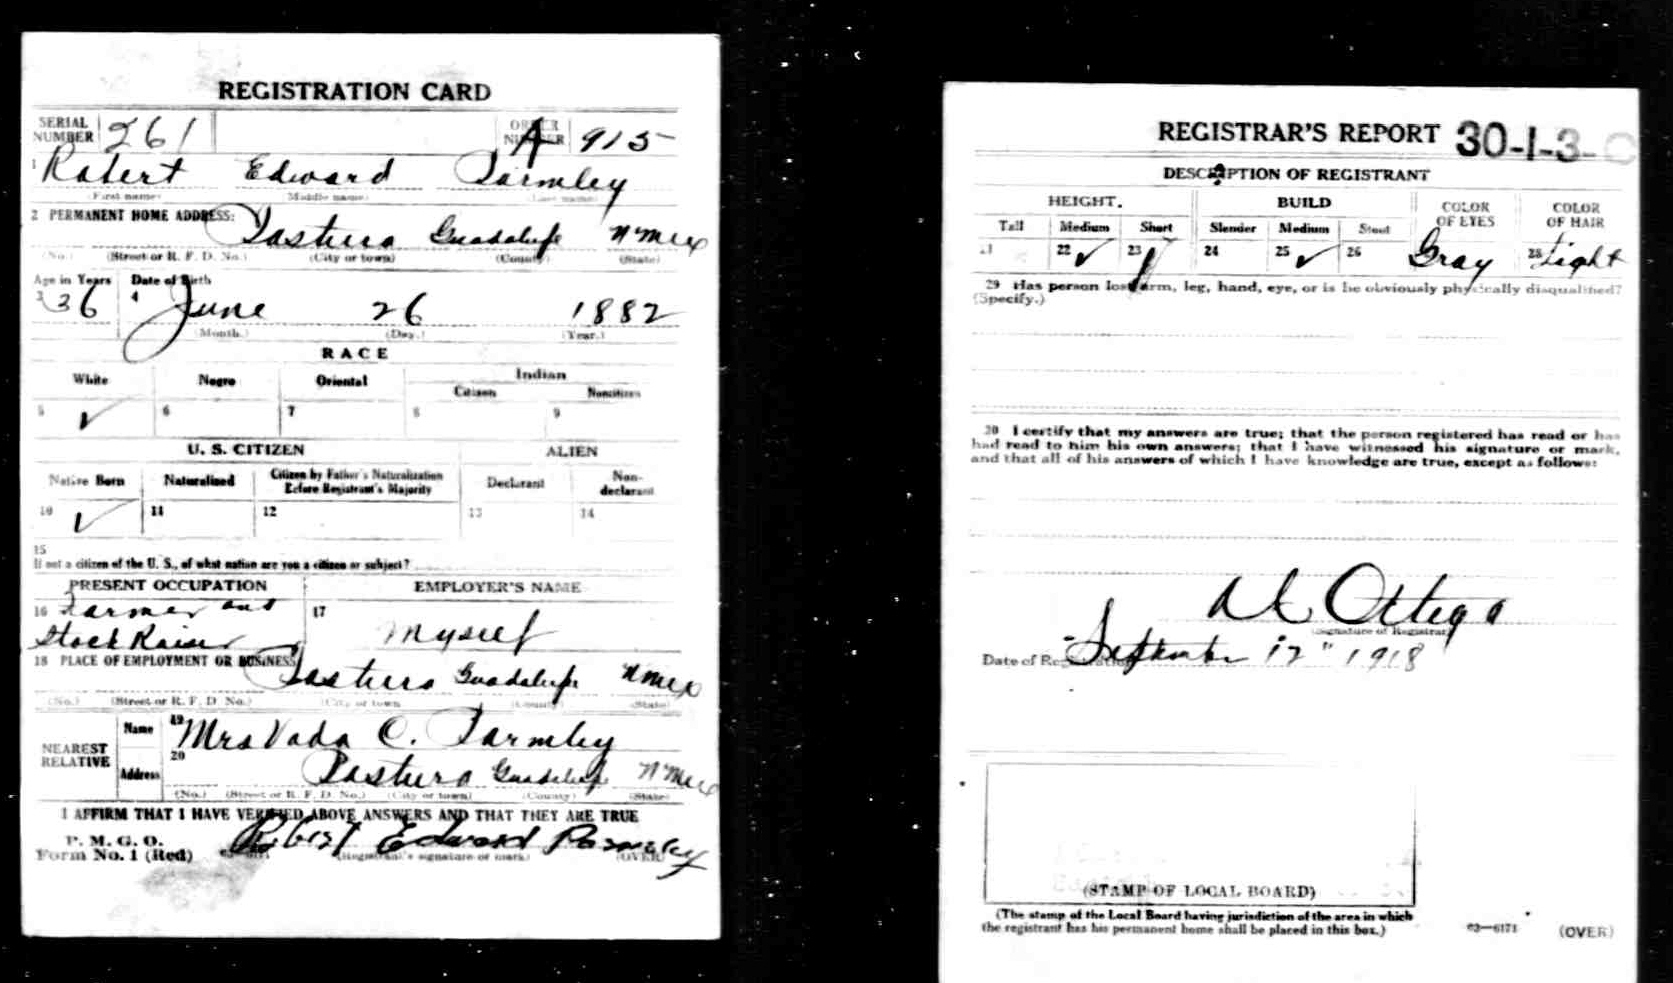 REGISTRATION CARD
SERIAL NUMBER 261 ORDER NUMBER A 915
1 Robert Edward Parmley
(First name) (Middle name) (Last name)
2 PERMANENT HOME ADDRESS:
Pastura Guadalupe N Mex
(No.) (Street or R. F. D. No.) (City or town) (County) (State)
Age in Years Date of Birth
3 36 4 June 26 1882
(Month.) (Day.) (Year.)
RACE
White Negro Oriental Indian
Citizen Noncitizen
5 ✓ 6 7 8 9
U. S. CITIZEN ALIEN
Native Born Naturalized Citizen by Father's Naturalization Before Registrant's Majority Declarant Non-declarant
10 ✓ 11 12 13 14
15
If not a citizen of the U. S., of what nation are you a citizen or subject?
PRESENT OCCUPATION EMPLOYER'S NAME
16 Farmer and 17
Stock Raiser Myself
18 PLACE OF EMPLOYMENT OR BUSINESS
Pastura Guadalupe N Mex
(No.) (Street or R. F. D. No.) (City or town) (County) (State)
NEAREST RELATIVE
Name 19 Mrs Vada C. Parmley
Address 20 Pastura Guadalupe N Mex
(No.) (Street or R. F. D. No.) (City or town) (County) (State)
I AFFIRM THAT I HAVE VERIFIED ABOVE ANSWERS AND THAT THEY ARE TRUE
P. M. G. O.
Form No. 1 (Red) Robert Edward Parmley
(Registrant's signature or mark) (OVER)
REGISTRAR'S REPORT 30-1-3-C
DESCRIPTION OF REGISTRANT
HEIGHT. BUILD COLOR OF EYES COLOR OF HAIR
Tall Medium Short Slender Medium Stout
21 22 ✓ 23 24 25 ✓ 26 Gray 28 Light
29 Has person lost arm, leg, hand, eye, or is he obviously physically disqualified?
(Specify.)
30 I certify that my answers are true; that the person registered has read or has
had read to him his own answers; that I have witnessed his signature or mark,
and that all of his answers of which I have knowledge are true, except as follows:
Ortega
(Signature of Registrar)
Date of Registration September 12" 1918
(STAMP OF LOCAL BOARD)
(The stamp of the Local Board having jurisdiction of the area in which
the registrant has his permanent home shall be placed in this box.)
03—6171 (OVER)